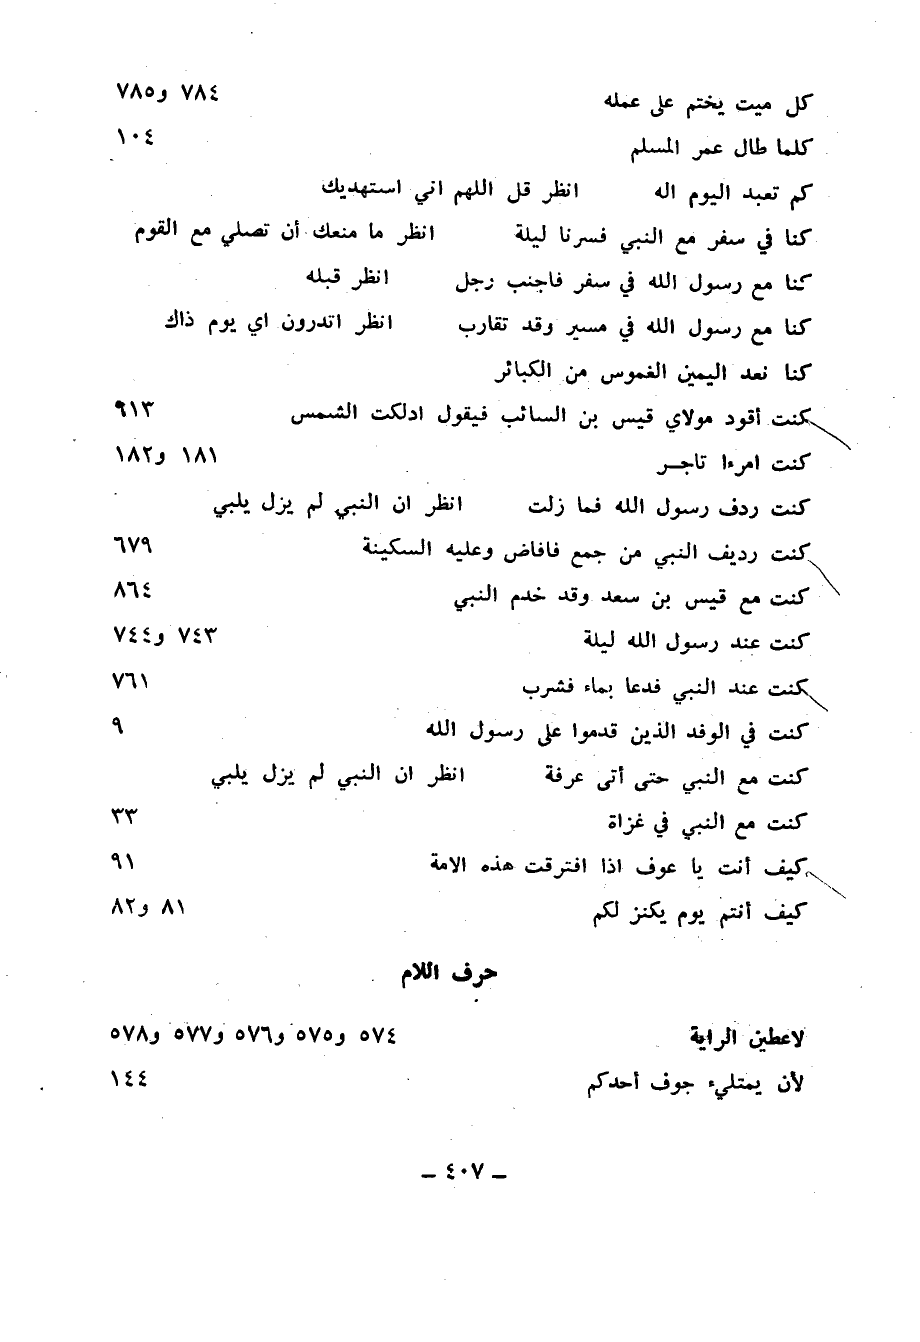 كل ميت يختم على عمله ٧٨٤ و٧٨٥
كلما طال عمر المسلم ١٠٤
كم تعبد اليوم اله انظر قل اللهم اني استهديك
كنا في سفر مع النبي فسرنا ليلة انظر ما منعك أن تصلي مع القوم
كنا مع رسول الله في سفر فاجنب رجل انظر قبله
كنا مع رسول الله في مسير وقد تقارب انظر اتدرون اي يوم ذاك
كنا نعد اليمين الغموس من الكبائر
كنت أقود مولاي قيس بن السائب فيقول ادلكت الشمس ٩١٣
كنت امرءا تاجر ١٨١ و١٨٢
كنت ردف رسول الله فما زلت انظر ان النبي لم يزل يلبي
كنت رديف النبي من جمع فافاض وعليه السكينة ٦٧٩
كنت مع قيس بن سعد وقد خدم النبي ٨٦٤
كنت عند رسول الله ليلة ٧٤٣ و٧٤٤
كنت عند النبي فدعا بماء فشرب ٧٦١
كنت في الوفد الذين قدموا على رسول الله ٩
كنت مع النبي حتى أتى عرفة انظر ان النبي لم يزل يلبي
كنت مع النبي في غزاة ٣٣
كيف أنت يا عوف اذا افترقت هذه الامة ٩١
كيف أنتم يوم يكنز لكم ٨١ و٨٢
حرف اللام
لاعطين الراية ٥٧٤ و٥٧٥ و٥٧٦ و٥٧٧ و٥٧٨
لأن يمتليء جوف أحدكم ١٤٤
ـ ٤٠٧ ـ